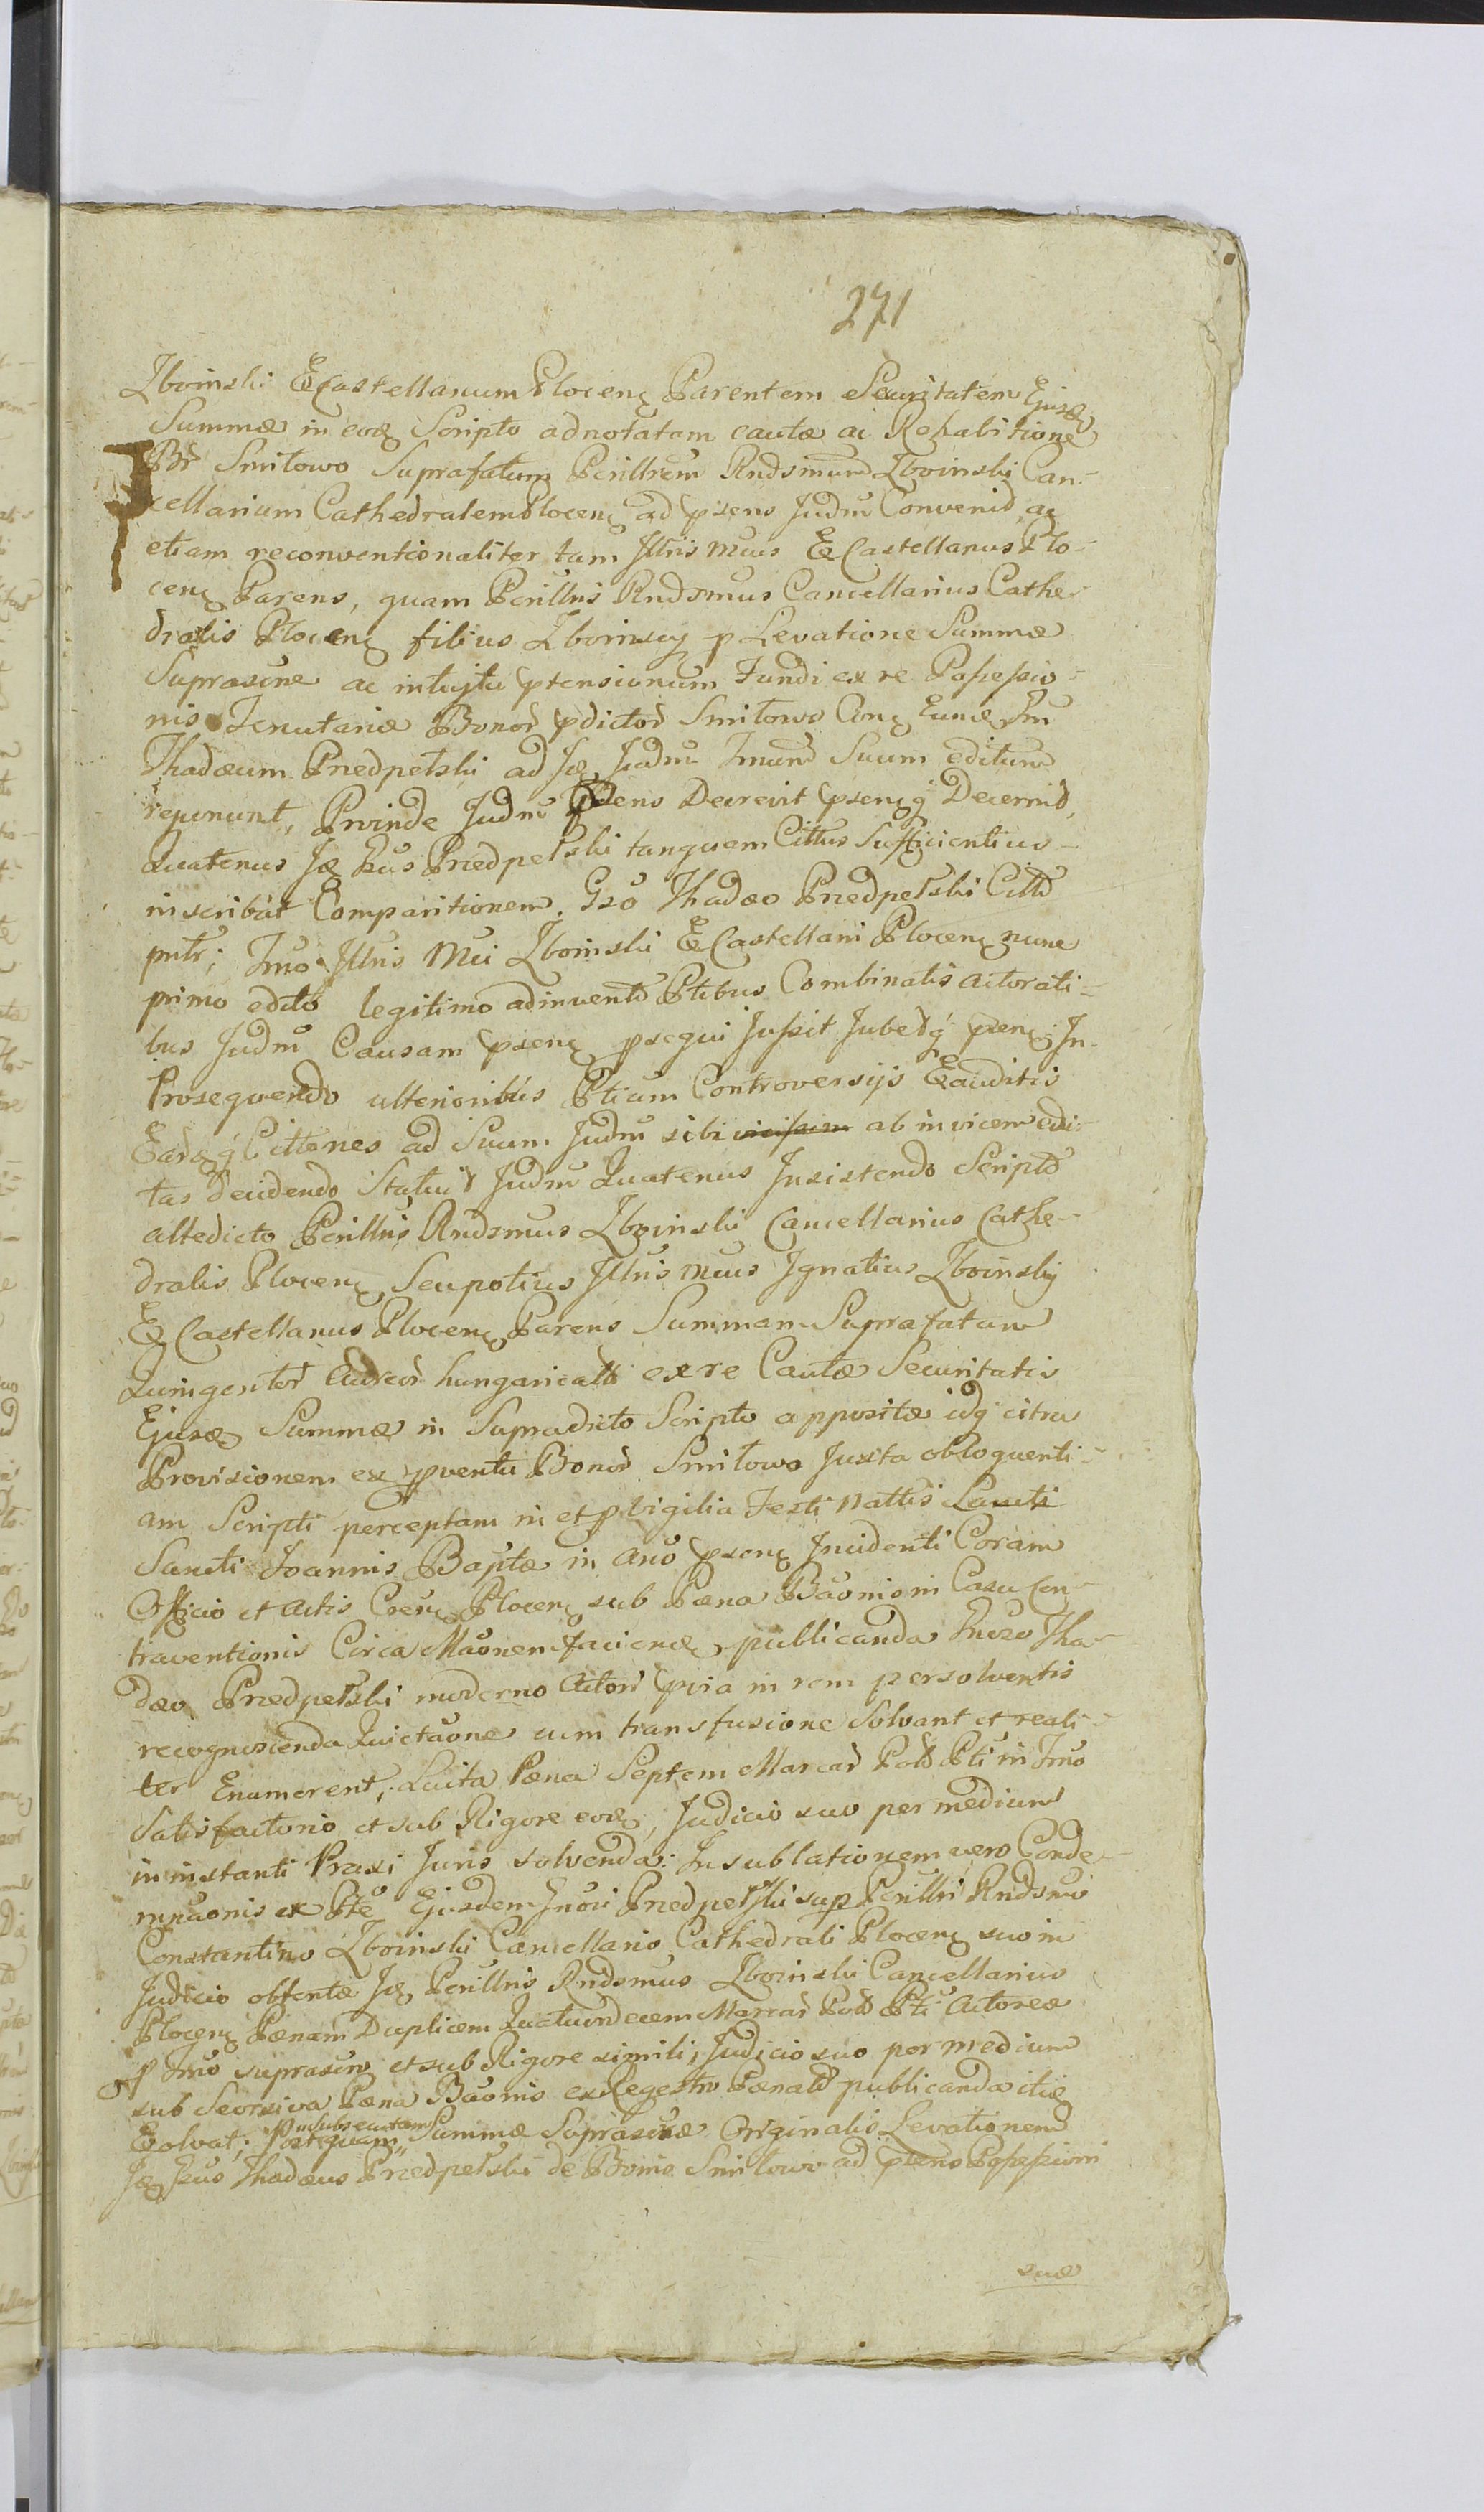 271
Zboinski ExCastellanum Plocen Parentem Securitatem Ejusd
Summæ in eod Scripto adnotatam cautæ ac Rehabitione
Br Smiłowo Suprafatum Perillrem Rndsmum Zboinski Can-
cellarium Cathedralem Plocen ad psens Judm Convenit, ac
etiam reconventionaliter tam Jllris Mcus ExCastellanus Plo-
cen Parens, quam Perillris Rndsmus Cancellarius Cathe-
dralis Plocen filius Zboinscy p Levatione Summæ
Suprascrιæ ac intuitu ptensionum Fundi ex re Possessio-
nis Tenutariæ Bonor pdictor Smiłowo
Thadæum Przedpełski ad Id Judm Tmum Suum editum
reponunt, Proinde Judm psens Decrevit psenq Decernit,
Quatenus Id Przedpełski tanquam Cittus Sufficientius
inscribat Comparitionem. Gso Thadæo Przedpełski Citto
pntr; Tmo Jllris Mci Zboinski ExCastellani Plocen nunc
primo edito legitimo adinvento Ptibus Combinatis actorati-
bus Judm Causam psen psequi Jussit Jubetq psen; In
Prosequendo ulterioribus Ptium Controversijs Exauditis
Eadq Cittones ad Suum Judm sibi vicissim ab invicem edi-
tas decidendo Statuit Judm Quatenus Insistendo Scripto
altedicto Perillris Rndsmus Zboinski Cancellarius Cathe-
dralis Plocen Seu potius Jllris Mcus Ignatius Zboinski
ExCastellanus Plocen Parens Summam Suprafatam
Quingentor Aureor hungaricalr ex re Cautæ Securitatis
Ejusd Summæ in Supradicto Scripto appositæ idq citra
Provisionem ex pventu Bonor Smiłowo Juxta obloquenti-
am Scripti perceptam in et p Vigilia Festi Nattis Sancti
Sancti Joannis Baptæ in Ano psen Incidenti Coram
Officio et Actis Cren Plocen sub Pæna Bäonis in Casu Con-
traventionis Circa Mäonem faciend publicanda Thad-
dæo Przedpełski moderno Actori pvia in rem persolventis
recognoscenda Quictäone cum transfusione Solvant et reali-
ter Enumerent, Luita Pæna Septem Marcar Pold Pti in Tmo
Satisfactorio et sub Rigore eod, Judicio suo per medium
in instanti Praxi Juris solvenda. In sublationem vero Conde-
mnäonis ex Pte Ejusdem Przedpełski sup Perillri Rndsmo
Constantino Zboinski Cancellario Cathedrali Plocen suo in
Judicio obtentæ Id Perillris Rndsmus Zboinski Cancellarius
Plocen Pænam Duplicem Quatuordecem Marcar Pold Pti Actoreæ
p Tmo suprascrιo et sub Rigore simili, Judicio suo per medium
sub Seorsiva Pæna Bäonis ex Regestro Pænali publicanda itid
Exolvat; Post quam insubsecutam Summæ Suprascrιæ Originalis Levationem
Id Thadæus Przedpełski de Bonis Smiłowo ad ptens Possessioni
suæ